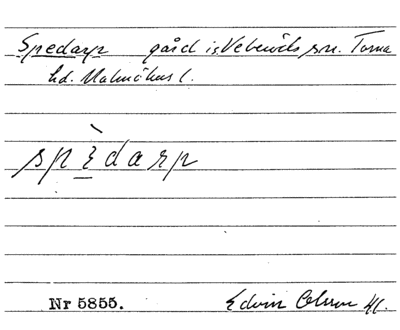 Spedarp gård i Veberöds sn. Torna
hd. Malmöhus l.
spèdarp
Nr 5855. Edvin Olsson